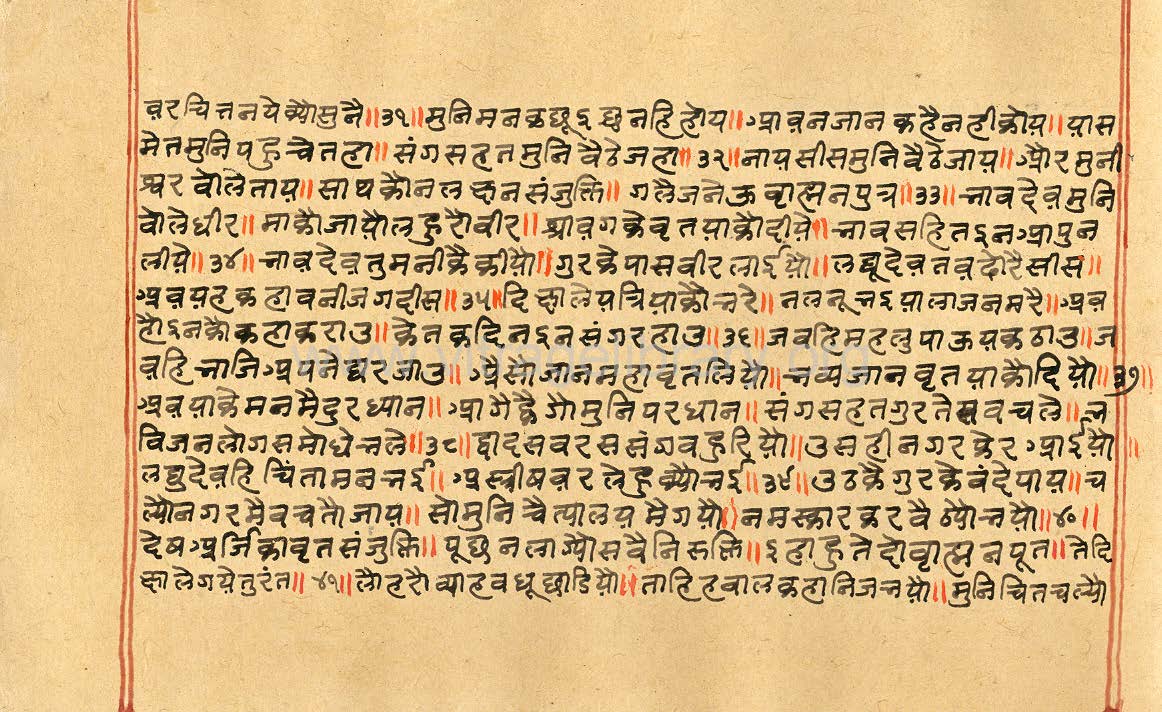 वरचित्तनयेव्यौसुनै॥३१॥मुनिमनकछूइछुनहिहोय॥आवनजानकहैनहीकोय॥पास
मेतमुनिपहुचेतहा॥संगसहतमुनिवैठेजहा॥३२॥नायसीसमुनिवैठेजाय॥औरमुनी
श्वरवोलेताय॥साथकौनलछनसंजुक्ति॥गलैजनेऊवाह्मनपुत्र॥३३॥भावदेवमुनि
वोलेधीर॥माकौजायौलहुरौवीर॥श्रावगकेवृतयाकौदीये॥भावसहितइनआपुन
लीये॥३४॥भावदेवतुमनीकैकीयौ॥गुरकेपासवीरलाईयौ॥लघूदेवतवदोरैसीस॥
अवयहकहावनीजगदीस॥३५॥दिछालेयत्रियाकौभरे॥नलनूभइयालाजनमरै॥अव
हौइनकौकहाकराउ॥केतकदिनइनसंगरहाउ॥३६॥जवहिमहलुपाऊयकठाउ॥ज
वहिभाजिअपनेघरजाउ॥असोजानमहावृतलियौ॥भव्यजानवृतयाकौदियौ॥३७॥
अवयाकेमनमैदुरध्यान॥आगैहैगौमुनिपरधान॥संगसहतगुरतेसवचले॥भ
विजनलोगसमोधेभले॥३८॥द्वादसवरससंगवहुरियौ॥उसहीनगरफेरआईयौ॥
लघुदेवहिचिंतामनभई॥अस्त्रीषवरलेहुव्यौभई॥३९॥उठकैगुरकेवंदेपाय॥च
ल्यौनगरमैवचतौजाय॥सोमुनिचैत्यालयमेगयौ॥नमस्कारकरवैठ्यौभयौ॥४०॥
देषअर्जिकावृतसंजुक्ति॥पूछनलाग्यौसवैनिरुक्ति॥इहाहुतेदोवाह्मनपूत॥तेदि
छालेगयेतुरंत॥४१॥लौहरौव्याहवधूछाडियौ॥ताहिहवालकहानिजभयौ॥मुनिचितचल्यौ